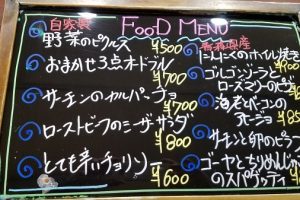 FOOD MENU
自家製
野菜のピクルス
¥500
おまかせ3点オードブル
¥700
サーモンのカルパッチョ
¥700
ローストビーフのシーザーサラダ
¥800
とても辛いチョリソー
¥600
青森県産
にんにくのホイル焼き
¥400
ゴルゴンゾーラと
ローズマリーの
海老とベーコンの
アヒージョ
¥85
サーモンと卵のピラフ
ゴーヤとちりめんじゃこ
のスパゲッティ